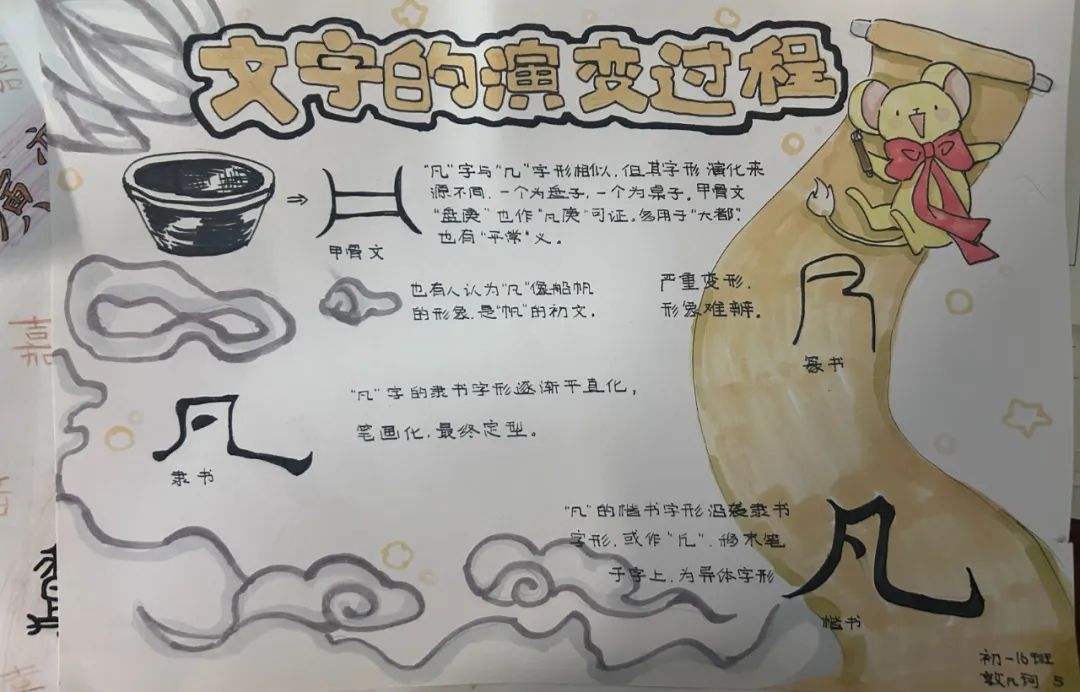 文字的演变过程
"凡"字与"几"字形相似，但其字形演化来
源不同，一个为盘子，一个为桌子。甲骨文
"盘庚"也作"凡庚"可证。多用于"大都"，
也有"平常"义。
甲骨文
也有人认为"凡"像船帆
的形象，是"帆"的初文，
严重变形，
形象难辨。
篆书
"凡"字的隶书字形逐渐平直化，
笔画化，最终定型。
凡
隶书
"凡"的楷书字形沿袭隶书
字形，或作"凢"，移末笔
于字上，为异体字形
凡
楷书
初一16班
嘉